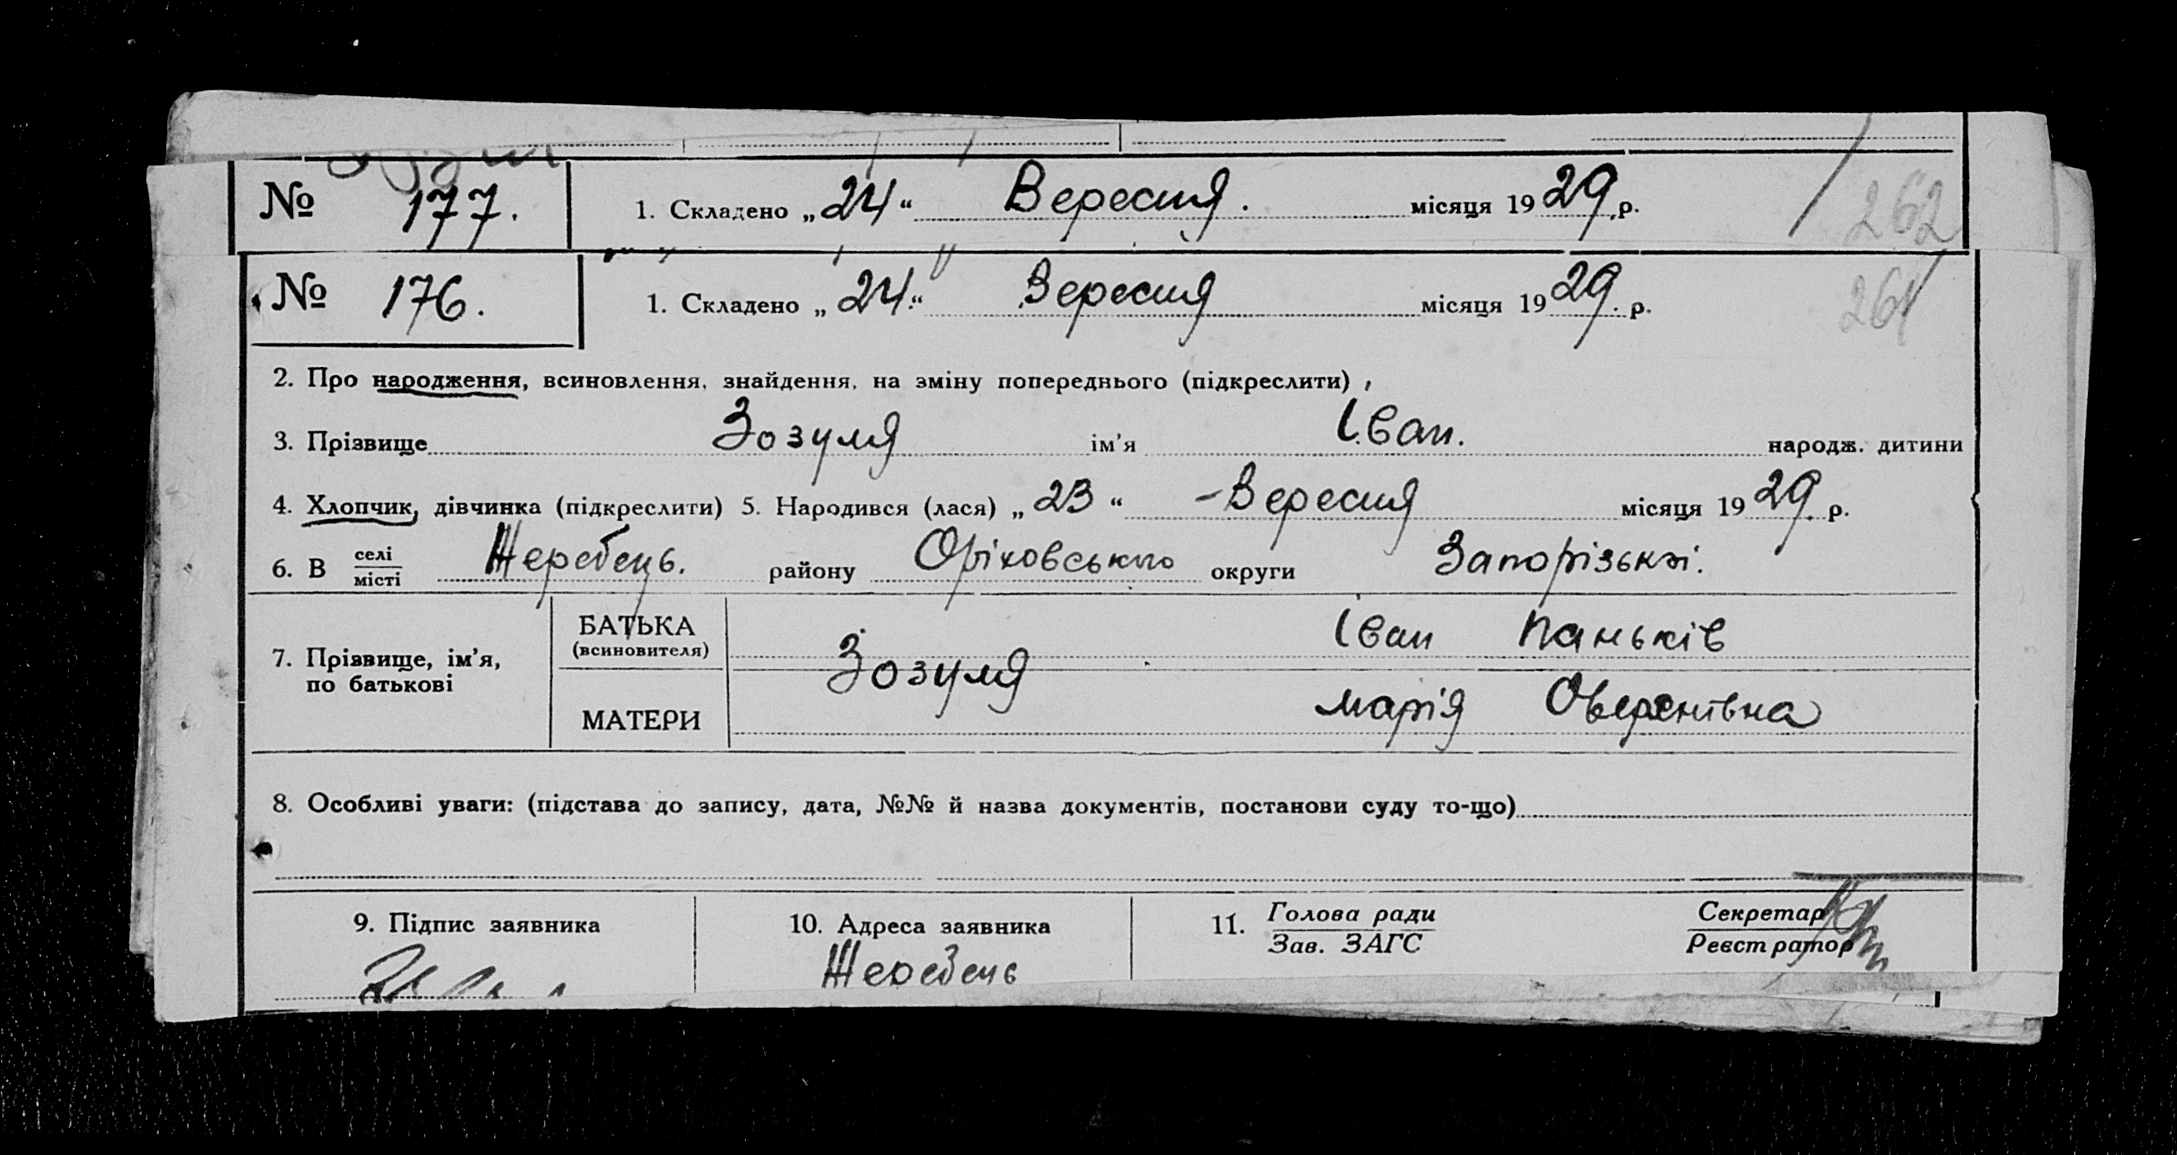 № 177. 1. Складено „24“ Вересня. місяця 1929 р.
262
№ 176. 1. Складено „24.“ Вересня місяця 1929. р.
261
2. Про народження, всиновлення, знайдення, на зміну попереднього (підкреслити)
3. Прізвище Зозуля ім'я Іван. народж. дитини
4. Хлопчик, дівчинка (підкреслити) 5. Народився (лася) „23“ - Вересня місяця 1929. р.
6. В селі місті Жеребець. району Оріховського округи Запорізької.
7. Прізвище, ім'я, по батькові
БАТЬКА (всиновителя) Зозуля Іван Паньків
МАТЕРИ Марія Оверківна
8. Особливі уваги: (підстава до запису, дата, №№ й назва документів, постанови суду то-що)
9. Підпис заявника
10. Адреса заявника
Жеребець
11. Голова ради
Зав. ЗАГС
Секретар
Реєстратор